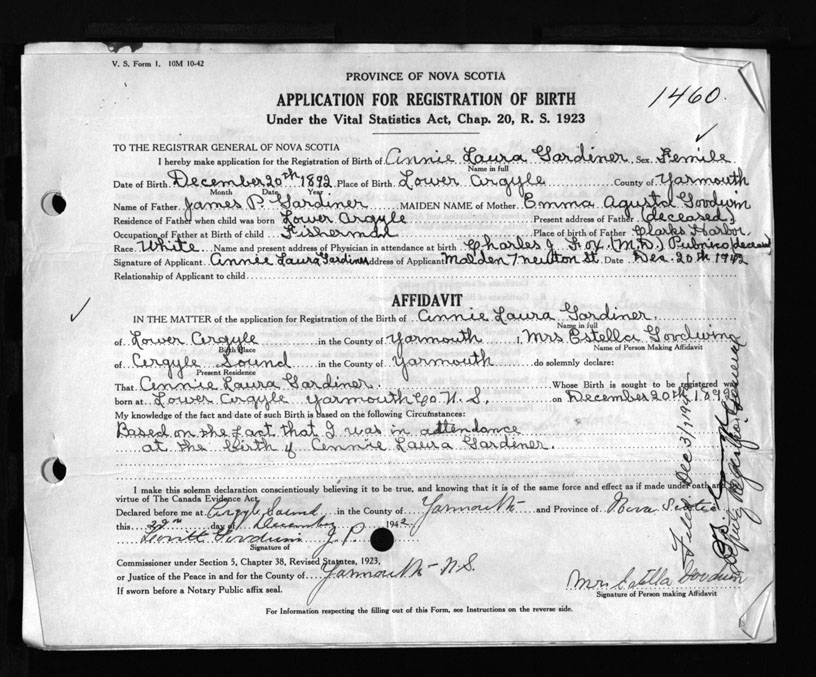 V. S. Form 1. 10M 10-42
PROVINCE OF NOVA SCOTIA
APPLICATION FOR REGISTRATION OF BIRTH
1460.
Under the Vital Statistics Act, Chap. 20, R. S. 1923
TO THE REGISTRAR GENERAL OF NOVA SCOTIA
I hereby make application for the Registration of Birth of Annie Laura Gardiner. Sex Femile
Name in full
Date of Birth December 20th 1892 Place of Birth Lower Argyle County of Yarmouth
Month Date Year
Name of Father James P. Gardiner MAIDEN NAME of Mother Emma Agusta Goodwin
Residence of Father when child was born Lower Argyle Present address of Father (deceased)
Occupation of Father at Birth of child Fisherman Place of birth of Father Clarks Harbor
Race White Name and present address of Physician in attendance at birth Charles J. Fox (M.D.) Pubnico (deceased
Signature of Applicant Annie Laura Gardiner Address of Applicant Malden 7 Newton St. Date Dec. 20th 1942
Relationship of Applicant to child
AFFIDAVIT
IN THE MATTER of the application for Registration of the Birth of Annie Laura Gardiner.
Name in full
of Lower Argyle in the County of Yarmouth I, Mrs Estella Goodwin
Birth Place Name of Person Making Affidavit
of Argyle Sound in the County of Yarmouth do solemnly declare:
Present Residence
That Annie Laura Gardiner. Whose Birth is sought to be registered was
born at Lower Argyle Yarmouth Co N.S. on December 20th, 1892
My knowledge of the fact and date of such Birth is based on the following Circumstances:
Based on the fact that I was in attendance
at the birth of Annie Laura Gardiner.
I make this solemn declaration conscientiously believing it to be true, and knowing that it is of the same force and effect as if made under oath and
virtue of The Canada Evidence Act.
Declared before me at Argyle Sound in the County of Yarmouth and Province of Nova Scotia
this 22nd day of December 1942
Goodwin J. P.
Signature of
Commissioner under Section 5, Chapter 38, Revised Statutes, 1923,
or Justice of the Peace in and for the County of Yarmouth N.S.
Mrs Estella Goodwin
If sworn before a Notary Public affix seal.
Signature of Person making Affidavit
For Information respecting the filling out of this Form, see Instructions on the reverse side.
Filed Dec 31/
Deputy Registrar General